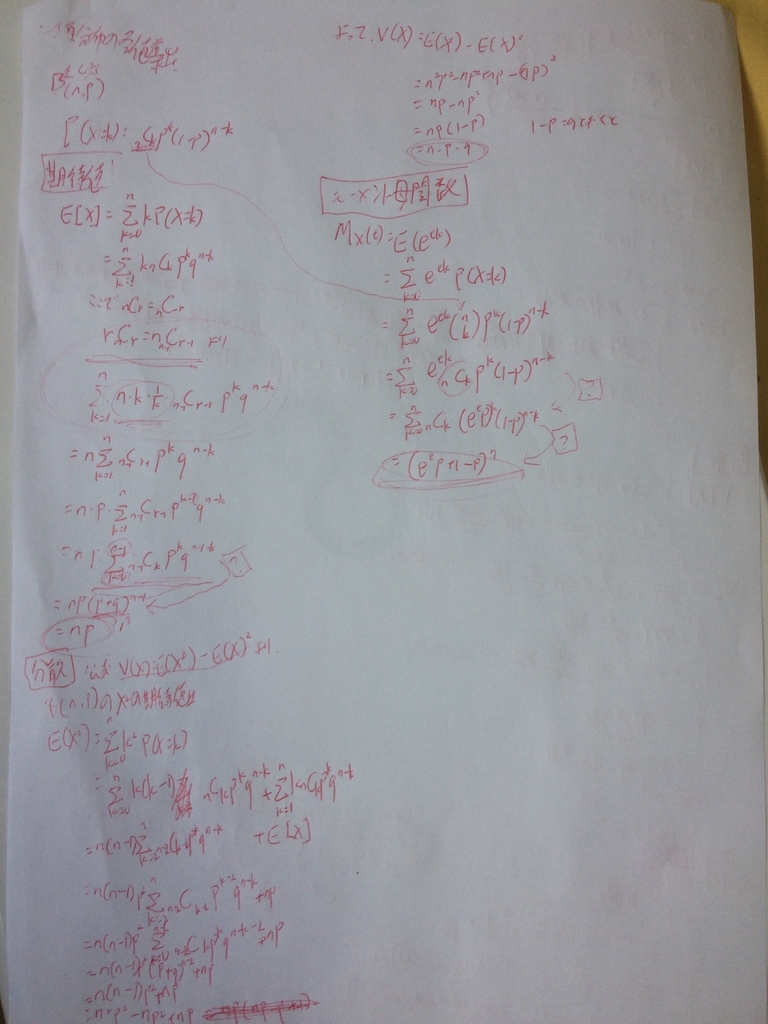 B(n,p)
P(X=k)= nCk p^k (1-p)^n-k
期待値
E[X] = Σ_{k=0}^{n} k P(X=k)
= Σ_{k=1}^{n} k nCk p^k q^n-k
r nCr = n n-1Cr-1 より
Σ_{k=1}^{n} n·k·1/k n-1Cr-1 p^k q^n-k
= n Σ_{k=1}^{n} n-1Cr-1 p^k q^n-k
= n·p·Σ_{k=1}^{n} n-1Cr-1 p^k-1 q^n-k
= n p·Σ_{k=0}^{n-1} n-1Ck p^k q^n-1-k
?
= np(p+q)^n-1
= np
分散
V(X)=E(X²)-E(X)² より
E(X²)=Σ_{k=0}^{n} k² P(X=k)
= Σ_{k=0}^{n} k(k-1) nCk p^k q^n-k + Σ_{k=1}^{n} k nCk p^k q^n-k
+E[X]
= n(n-1)p² Σ_{k=2}^{n} n-2Ck-2 p^k-2 q^n-k + np
= n(n-1)p² Σ_{k=0}^{n-2} n-2Ck p^k q^n-k-2 + np
= n(n-1)p² (p+q)^n-2 + np
= n(n-1)p²+np
= n²p²-np²+np
よって V(X)=E(X)-E(X)²
= n²p²-np²+np-(np)²
= np-np²
= np(1-p)
= n·p·q
モーメント母関数
Mx(t)=E(e^tk)
= Σ_{k=0}^{n} e^tk P(X=k)
= Σ_{k=0}^{n} e^tk (n k) p^k (1-p)^n-k
= Σ_{k=0}^{n} e^tk nCk p^k (1-p)^n-k
?
= Σ_{k=0}^{n} nCk (e^t p)^k (1-p)^n-k
?
= (e^t p+1-p)^n